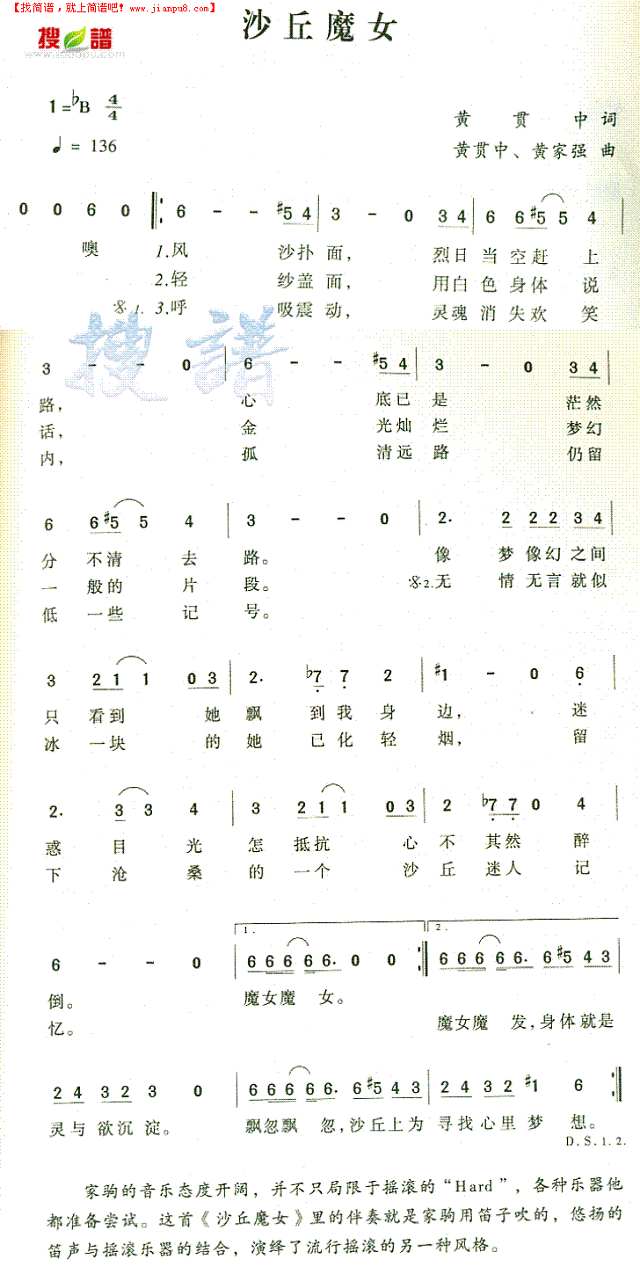 【找简谱，就上简谱吧！www.jianpu8.com】
搜谱
www.sooopu.com
沙丘魔女
1=♭B 4/4
♩= 136
黄贯中词
黄贯中、黄家强曲
0 0 6 0 ‖: 6 - - #5 4 | 3 - 0 3 4 | 6 6 #5 5 4 |
噢 1.风 沙扑面， 烈日当空赶上
2.轻 纱盖面， 用白色身体说
𝄋1. 3.呼 吸震动， 灵魂消失欢笑
搜谱
3 - - 0 | 6 - - #5 4 | 3 - 0 3 4 |
路， 心 底已是 茫然
话， 金 光灿烂 梦幻
内， 孤 清远路 仍留
6 6 #5 5 4 | 3 - - 0 | 2. 2 2 2 3 4 |
分不清去路。 像 梦像幻之间
一般的片段。 𝄋2.无 情无言就似
低一些记号。
3 2 1 1 0 3 | 2. ♭7 7 2 | #1 - 0 6 |
只看到 她飘 到我身边， 迷
冰一块 的她 已化轻烟， 留
2. 3 3 4 | 3 2 1 1 0 3 | 2 ♭7 7 0 4 |
惑目光怎抵抗 心不其然醉
下沧桑的一个 沙丘迷人记
1. 2.
6 - - 0 | 6 6 6 6 6. 0 0 :‖ 6 6 6 6 6. 6 #5 4 3 |
倒。 魔女魔 女。
忆。 魔女魔 发，身体就是
2 4 3 2 3 0 | 6 6 6 6 6. 6 #5 4 3 | 2 4 3 2 #1 6 :‖
灵与欲沉淀。 飘忽飘 忽，沙丘上为寻找心里梦想。
D.S.1.2.
家驹的音乐态度开阔，并不只局限于摇滚的“Hard”，各种乐器他
都准备尝试。这首《沙丘魔女》里的伴奏就是家驹用笛子吹的，悠扬的
笛声与摇滚乐器的结合，演绎了流行摇滚的另一种风格。